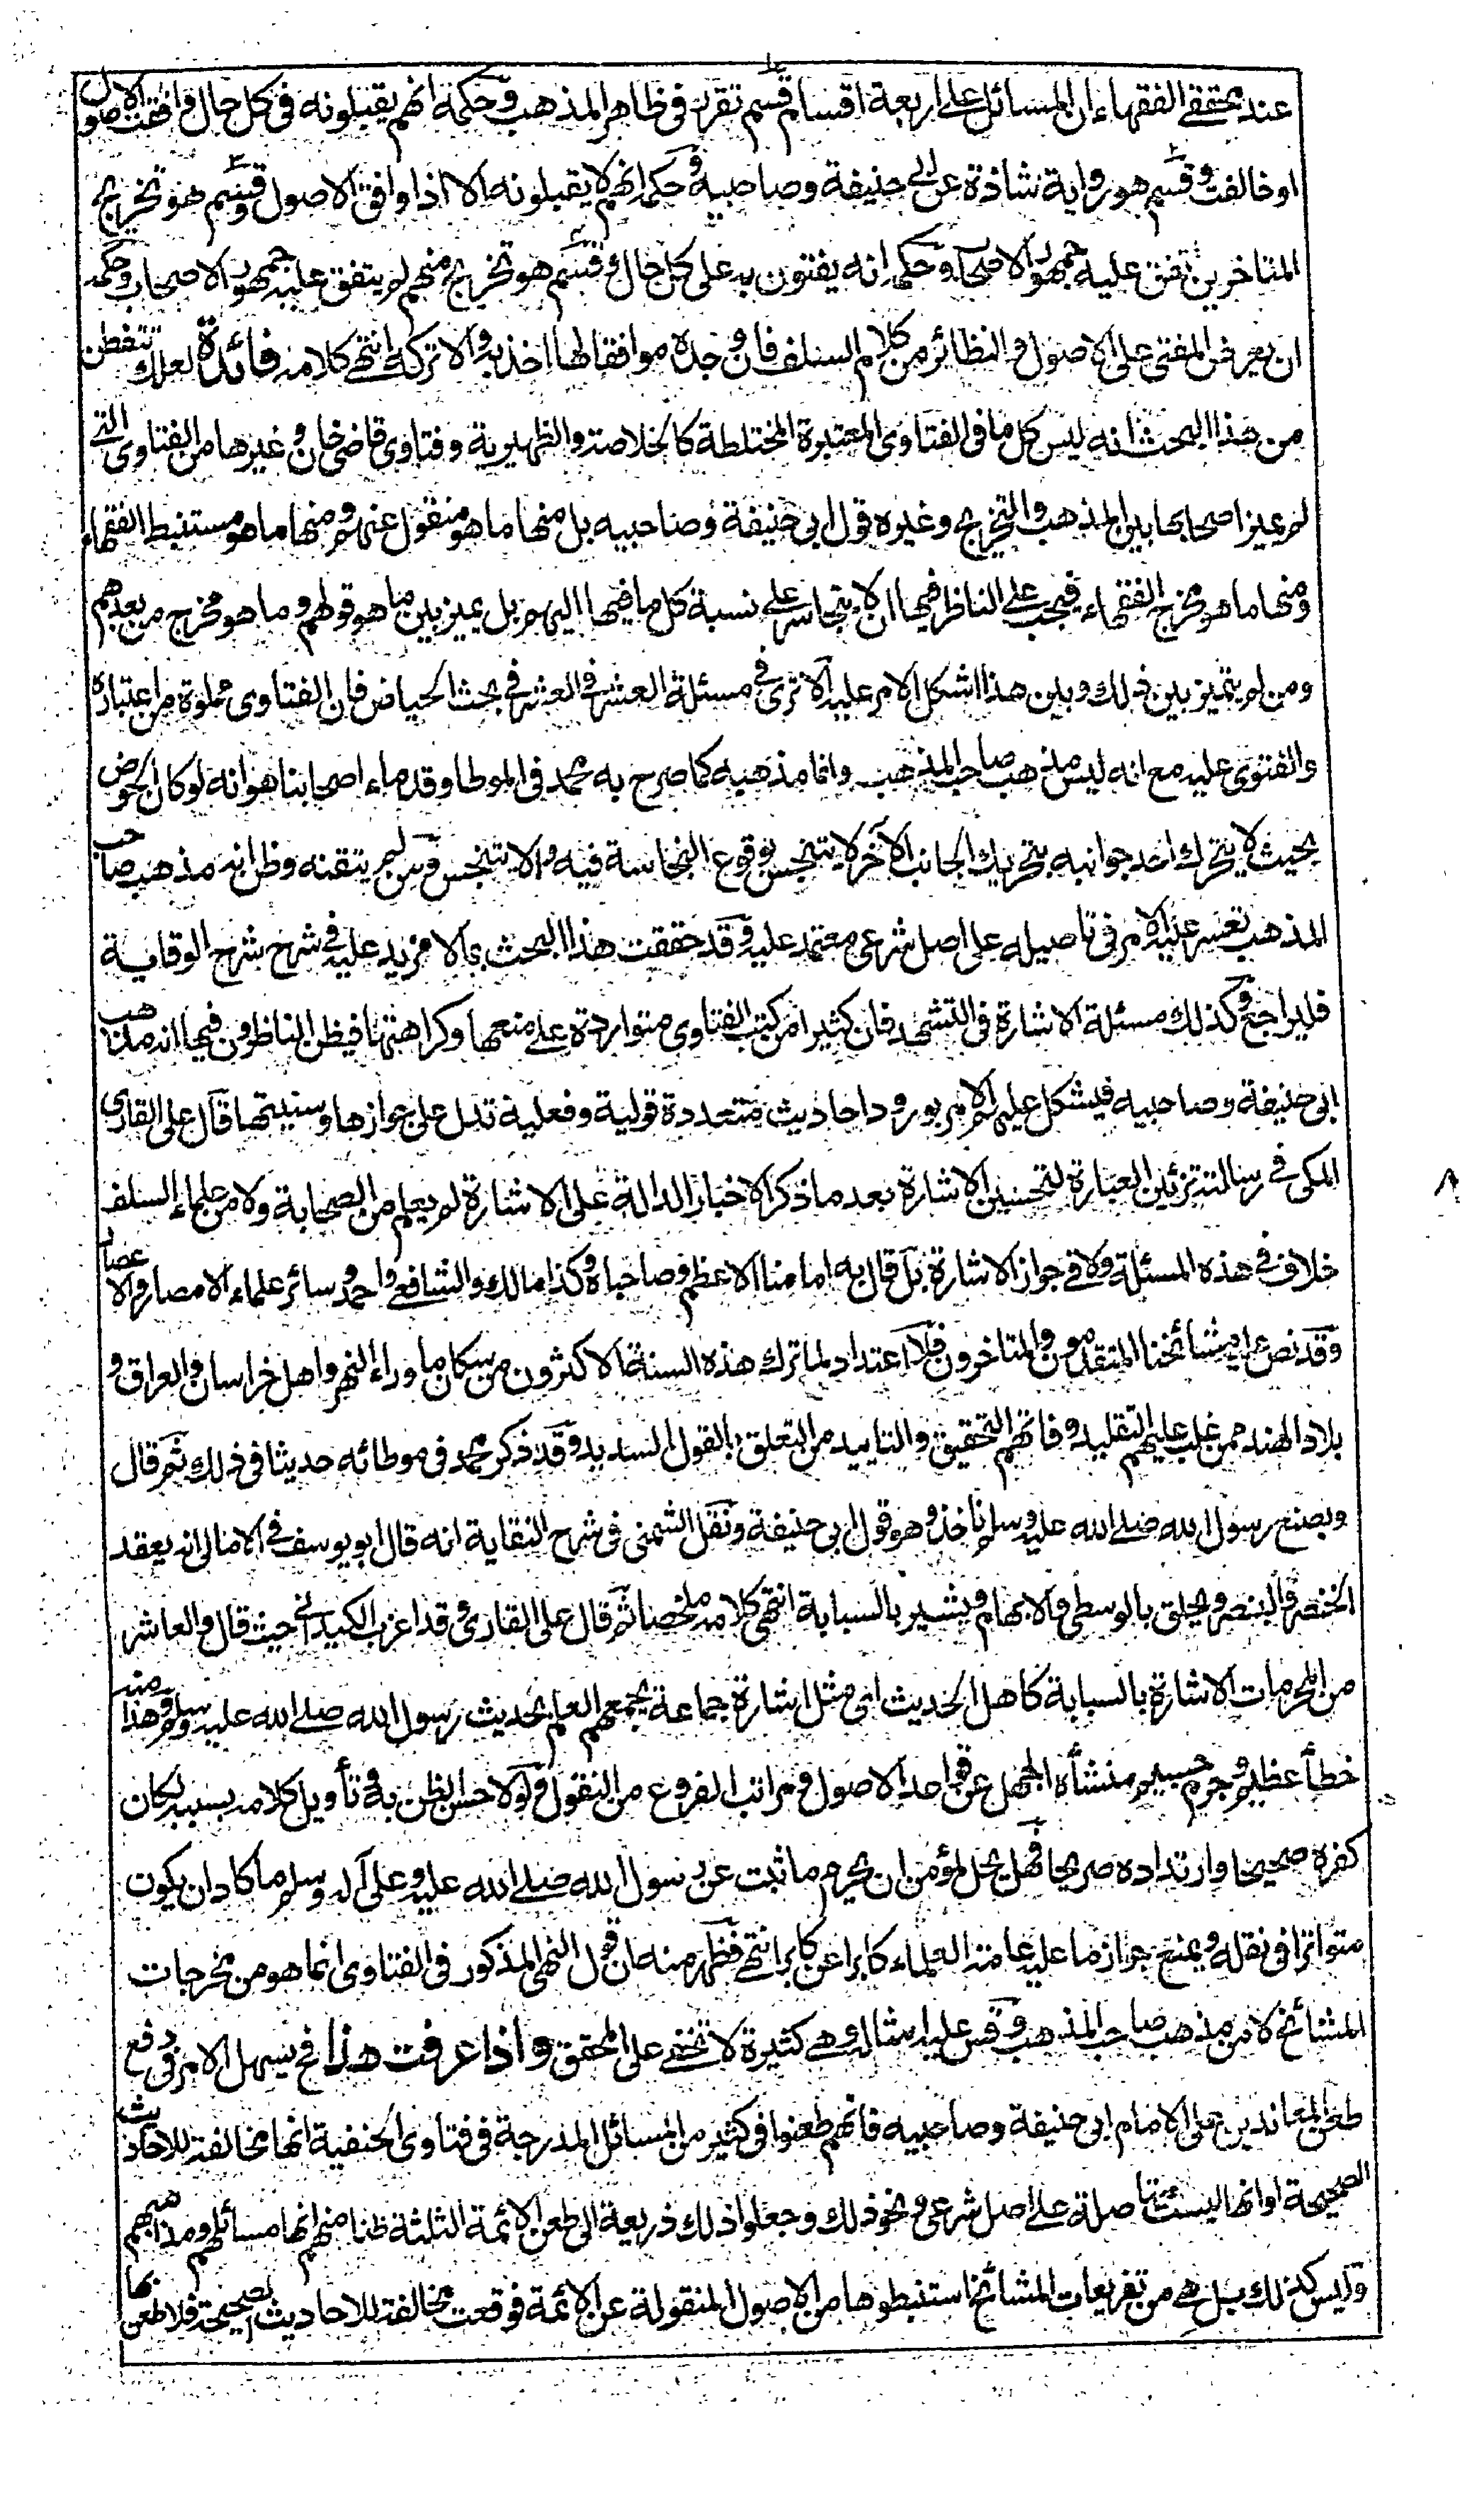 عند محققي الفقهاء ان المسائل على اربعة اقسام قسم تقرر في ظاهر المذهب وحكمه انهم يقبلونه في كل حال وافقت الاصول
او خالفت وقسم هو رواية شاذة عن ابي حنيفة وصاحبيه وحكمه انهم لا يقبلونه الا اذا وافق الاصول وقسم هو تخريج
المتاخرين تفق عليه جمهور الاصحاب وحكمه انه يفتون به على كل حال وقسم هو تخريج منهم لم يتفق عليه جمهور الاصحاب وحكمه
ان يعرض المفتى على الاصول والنظائر من كلام السلف فان وجده موافقا لها اخذ به والا تركه انتهى كلامه فائدة لعلك تتفطن
من هذا البحث انه ليس كل ما في الفتاوى المعتبرة المختلطة كالخلاصة والظهيرية وفتاوى قاضي خان وغيرها من الفتاوى التي
لم يميز اصحابها بين المذهب والتخريج وغيره قول ابي حنيفة وصاحبيه بل منها ما هو منقول عنهم ومنها ما هو مستنبط الفقهاء
ومنها ما هو مخرج الفقهاء فيجب على الناظر فيها ان لا يتجاسر على نسبة كل ما فيها اليهم بل يميز بين ما هو قولهم وما هو مخرج من بعدهم
ومن لم يتميز بين ذلك وبين هذا اشكل الامر عليه الا ترى في مسئلة العشر في العشر في بحث الحياض فان الفتاوى مملوة من اعتباره
والفتوى عليه مع انه ليس مذهب صاحب المذهب وانما مذهبه كما صرح به محمد في الموطا وقدماء اصحابنا هو انه لو كان الحوض
بحيث لا يتحرك احد جوانبه بتحريك الجانب الآخر لا يتنجس بوقوع النجاسة فيه والا يتنجس ومن لم يتقنه وظن انه مذهب صاحب
المذهب تعسر عليه الامر في تاصيله على اصل شرعي معتمد عليه وقد حققت هذا البحث بما لا مزيد عليه في شرح شرح الوقاية
فليراجع وكذلك مسئلة الاشارة في التشهد فان كثيرا من كتب الفتاوى متواردة على منعها وكراهتها فيظن الناظرون فيها انه مذهب
ابي حنيفة وصاحبيه فيشكل عليهم الامر بورود احاديث متعددة قولية وفعلية تدل على جوازها وسنيتها قال علي القاري
المكي في رسالته تزئين العبارة لتحسين الاشارة بعد ما ذكر الاخبار الدالة على الاشارة لم يعلم من الصحابة ولا من علماء السلف
خلاف في هذه المسئلة ولا في جواز الاشارة بل قال به امامنا الاعظم وصاحباه وكذا مالك والشافعي واحمد وسائر علماء الامصار والاعصار
وقد نص عليه مشائخنا المتقدمون والمتاخرون فلا اعتداد لما ترك هذه السنة الاكثرون من سكان ما وراء النهر واهل خراسان والعراق و
بلاد الهند ممن غلب عليهم التقليد وفاتهم التحقيق والتاييد من التعلق بالقول السديد وقد ذكر محمد في موطائه حديثا في ذلك ثم قال
وبصنع رسول الله صلى الله عليه وسلم ناخذ وهو قول ابي حنيفة ونقل الشمني في شرح النقاية انه قال ابو يوسف في الامالي انه يعقد
الخنصر والبنصر ويحلق بالوسطى والابهام ويشير بالسبابة انتهى كلامه ملخصا ثم قال علي القاري وقد اغرب الكيداني حيث قال والعاشر
من المحرمات الاشارة بالسبابة كاهل الحديث اي مثل اشارة جماعة يجمعهم العلم بحديث رسول الله صلى الله عليه وسلم وهذا منه
خطأ عظيم وجرم جسيم منشأه الجهل عن قواعد الاصول ومراتب الفروع من النقول ولولا حسن الظن به وتأويل كلامه بسببه لكان
كفره صحيحا وارتداده صريحا فهل يحل لمؤمن ان يحرم ما ثبت عن رسول الله صلى الله عليه وعلى آله وسلم ما كاد ان يكون
متواترا في نقله ويمنع جواز ما عليه عامة العلماء كابرا عن كابر انتهى فظهر منه ان قول النهي المذكور في الفتاوى انما هو من مخرجات
المشائخ لا من مذهب صاحب المذهب وقس عليه امثاله وهي كثيرة لا تخفى على المحقق واذا عرفت هذا فح يسهل الامر في دفع
طعن المعاندين على الامام ابي حنيفة وصاحبيه فانهم طعنوا في كثير من المسائل المدرجة في فتاوى الحنفية انها مخالفة للاحاديث
الصحيحة او انها ليست متاصلة على اصل شرعي ونحو ذلك وجعلوا ذلك ذريعة الى طعن الائمة الثلثة ظنا منهم انها مسائلهم ومذاهبهم
وليس كذلك بل هي من تفريعات المشائخ استنبطوها من الاصول المنقولة عن الائمة فوقعت مخالفة للاحاديث الصحيحة فلا طعن بها